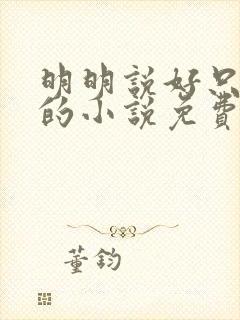 明明說好只
的小說免費
董鈞